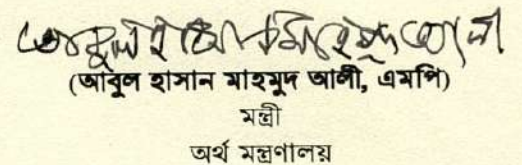 আবুল হাসান মাহমুদ আলী
(আবুল হাসান মাহমুদ আলী, এমপি)
মন্ত্রী
অর্থ মন্ত্রণালয়